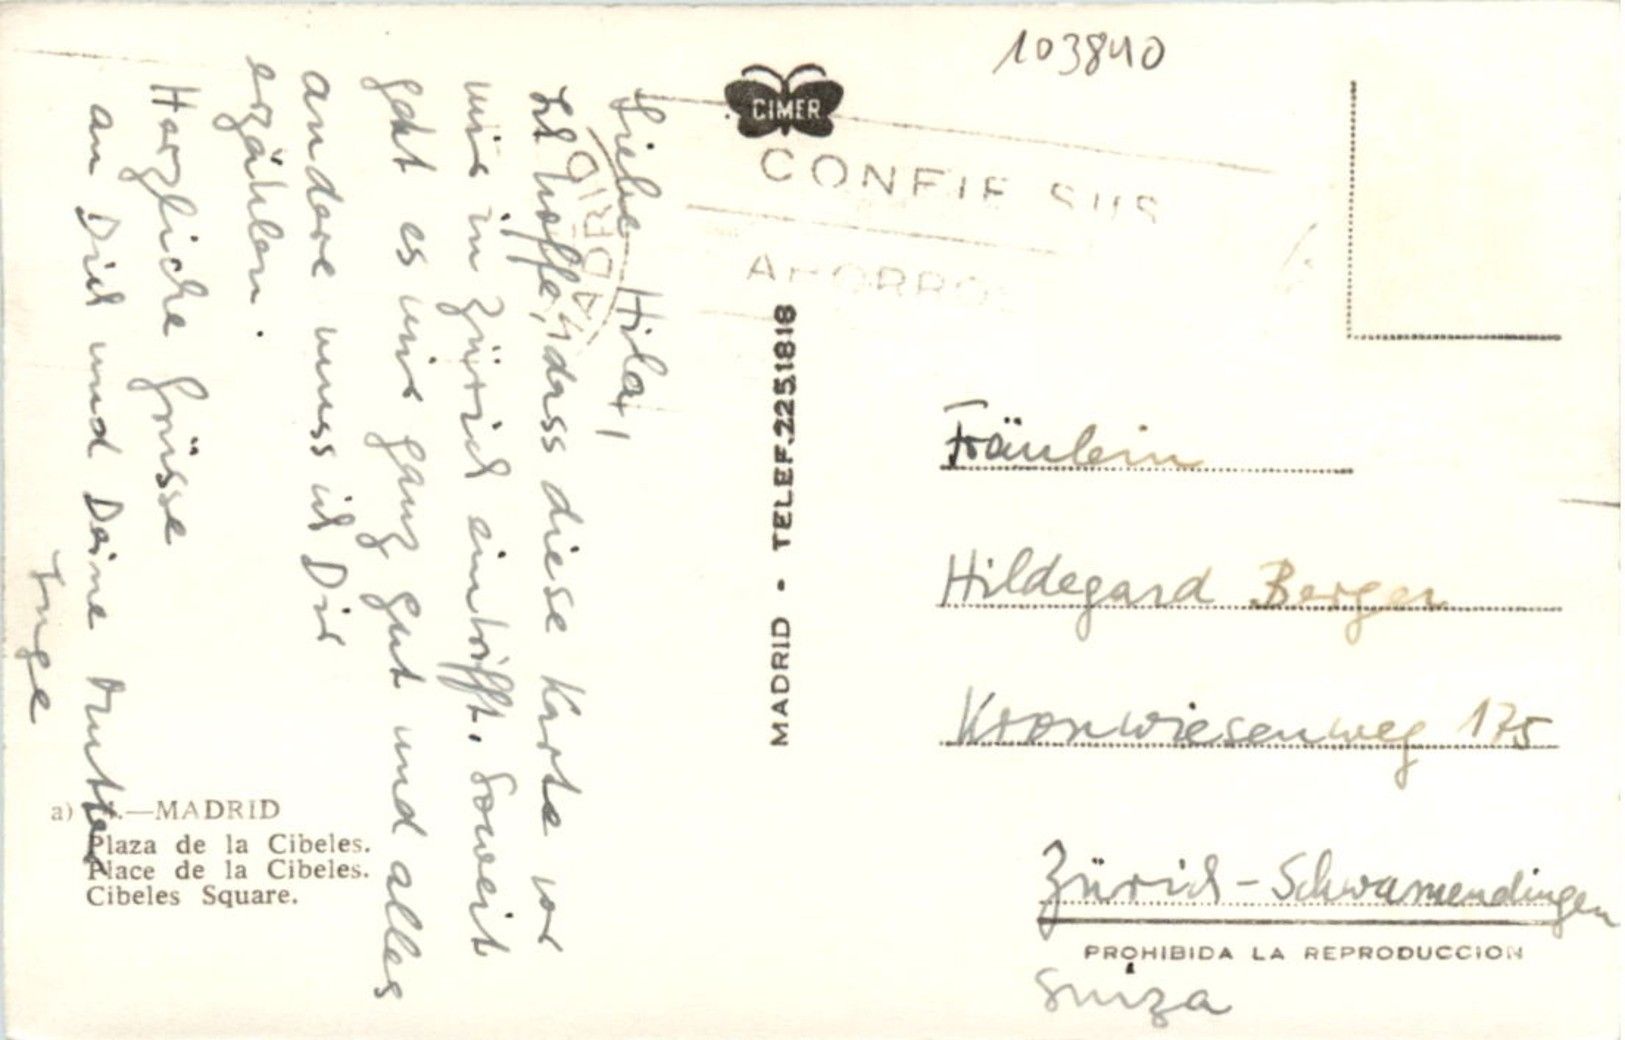 103840
CIMER
CONFIE SUS
AHORRO
MADRID
Liebe Hila,
Ich hoffe, dass diese Karte vor
mir in Zürich eintrifft. Soweit
geht es mir ganz gut und alles
andere muss ich Dir
erzählen.
Herzliche Grüsse
an Dich und Deine Mutter
Inge
MADRID - TELEF. 2251818
Fräulein
Hildegard Berger
Kronwiesenweg 175
Zürich - Schwamendingen
PROHIBIDA LA REPRODUCCION
Suiza
a) .—MADRID
Plaza de la Cibeles.
Place de la Cibeles.
Cibeles Square.